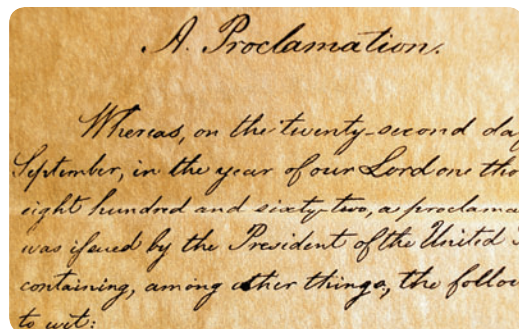 A Proclamation.
Whereas, on the twenty-second day
September, in the year of our Lord one tho
eight hundred and sixty-two, a proclama
was issued by the President of the United
containing, among other things, the follow
to wit: